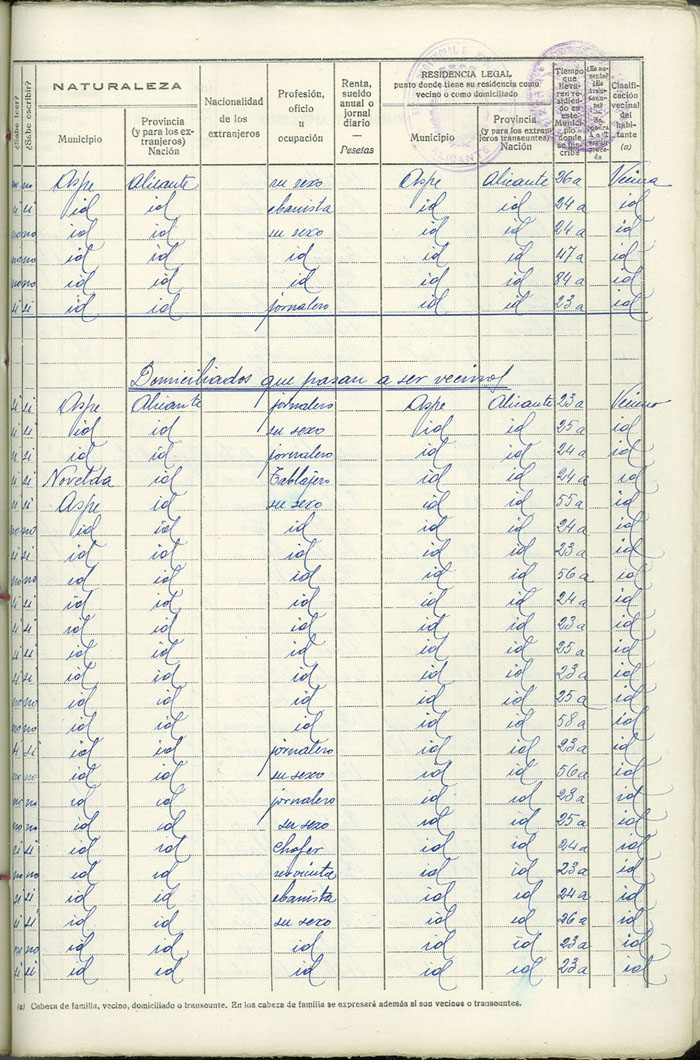 ¿Sabe leer? ¿Sabe escribir? NATURALEZA Nacionalidad de los extranjeros Profesión, oficio u ocupación Renta, sueldo anual o jornal diario — Pesetas RESIDENCIA LEGAL punto donde tiene su residencia como vecino o como domiciliado Clasificación vecinal del habitante (a)
Municipio Provincia (y para los extranjeros) Nación Municipio Provincia (y para los extranjeros transeuntes) Nación
no no Aspe Alicante su sexo Aspe Alicante 36 a Vecina
si si id id ebanista id id 24 a id
no no id id su sexo id id 24 a id
no no id id id id id 47 a id
no no id id id id id 84 a id
si si id id jornalero id id 23 a id
Domiciliados que pasan a ser vecinos
si si Aspe Alicante jornalero Aspe Alicante 23 a Vecino
si si id id su sexo id id 25 a id
si si id id jornalero id id 24 a id
si si Novelda id Tablajero id id 24 a id
si si Aspe id su sexo id id 55 a id
no no id id id id id 24 a id
si si id id id id id 23 a id
no no id id id id id 56 a id
si si id id id id id 24 a id
si si id id id id id 23 a id
si si id id id id id 25 a id
si si id id id id id 23 a id
no no id id id id id 25 a id
no no id id id id id 58 a id
si si id id jornalero id id 23 a id
no no id id su sexo id id 56 a id
no no id id jornalero id id 23 a id
no no id id su sexo id id 25 a id
si si id id chofer id id 24 a id
no no id id id id 23 a id
si si id id ebanista id id 24 a id
si si id id su sexo id id 26 a id
no no id id id id id 23 a id
si si id id id id id 23 a id
(a) Cabeza de familia, vecino, domiciliado o transeunte. En los cabeza de familia se expresará además si son vecinos o transeuntes.